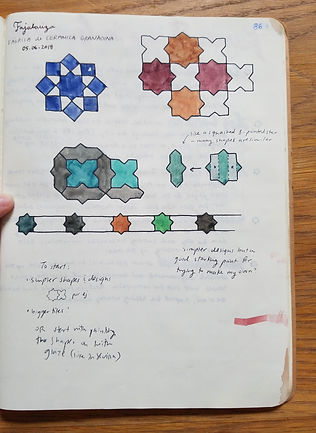 Fajalauza
FABRICA de CERAMICA GRANADINA
05.06.2019
86
like a squashed 8 pointed star
- many shapes are similar
simpler designs but a
good starting point for
trying to make my own!
To start:
• simpler shapes & designs
or
• bigger tiles!
OR start with painting
the shapes on with
glaze (like in